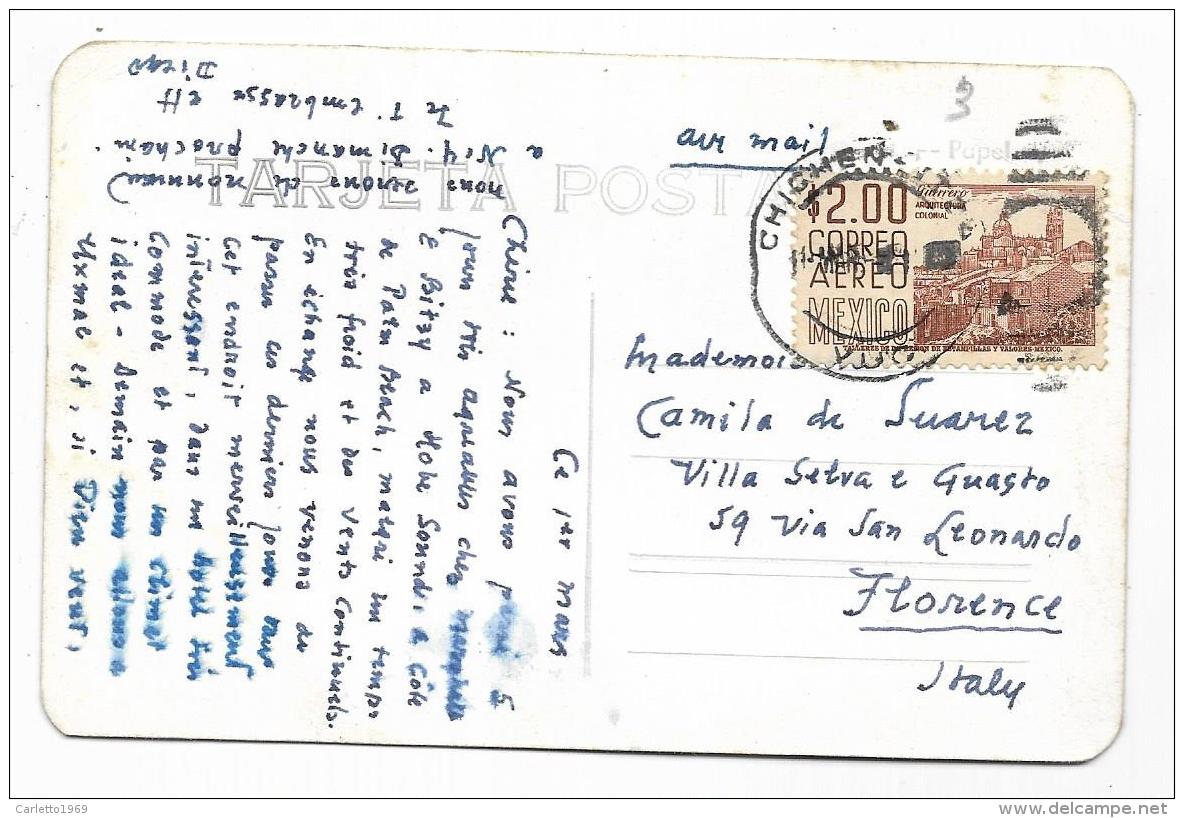 TARJETA POSTAL
air mail
3
Papel
CHICHEN
$2.00
CORREO
AEREO
MEXICO
Guerrero
ARQUITECTURA
COLONIAL
TALLERES DE IMPRESION DE ESTAMPILLAS Y VALORES-MEXICO.
Mademois
Camila de Suarez
Villa Selva e Guasto
59 Via San Leonardo
Florence
Italy
Ce 1er mars
Chérie : Nous avons passé 5
jours très agréables chez
E Bitzy a Hobe Sound, a Côté
de Palm Beach, malgré un temps
très froid et des vents continuels.
En échange nous venons de
passer ces derniers jours dans
Cet endroit merveilleusement
interessant, dans un hotel très
Commode et par un climat
idéal - Demain nous allons a
Uxmal et, si Dieu veut,
nous serons de nouveau
a N.Y. Dimanche prochain.
Je t'embrasse
Diego
Carletto1969
delcampe.net